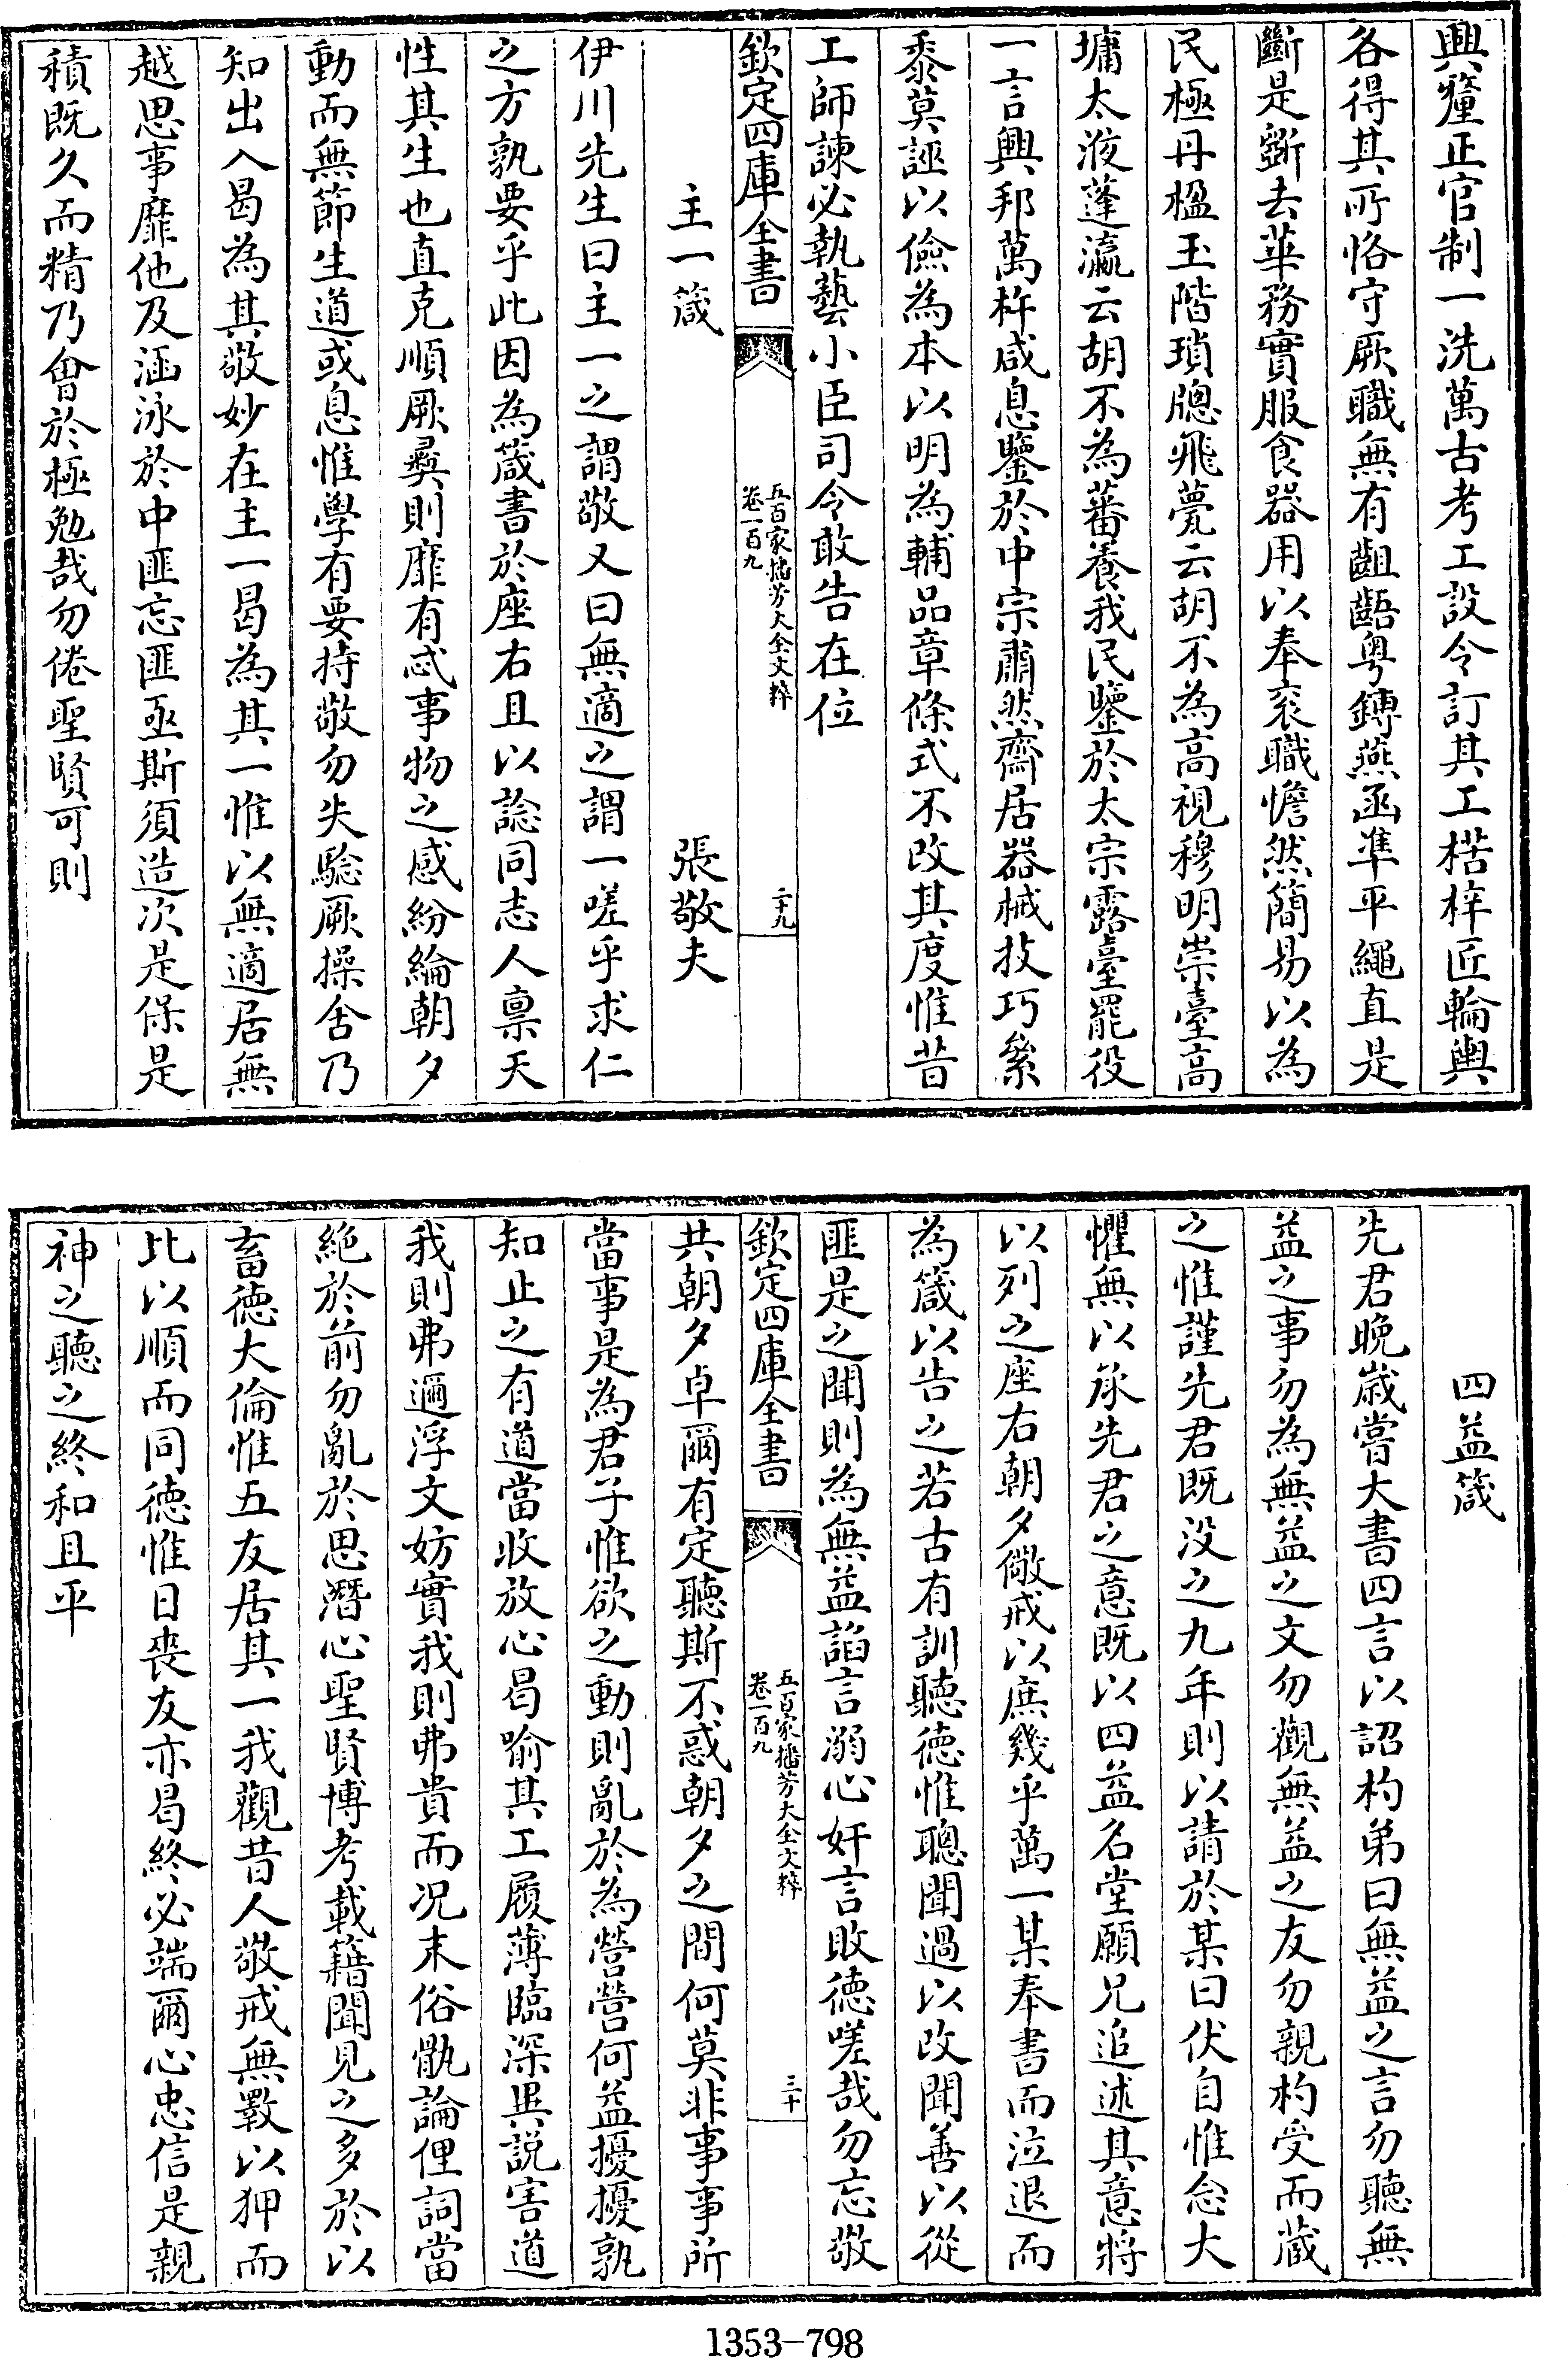 興釐正官制一洗萬古考工設令訂其工楛梓匠輪輿
各得其所恪守厥職無有齟齬粤鏄燕函準平繩直是
斷是斵去華務實服食器用以奉衮職憺然簡易以為
民極丹楹玉階瑣牕飛甍云胡不為高視穆明崇臺高
墉太液蓬瀛云胡不為蕃養我民鑒於太宗露臺罷役
一言興邦萬杵咸息鑒於中宗肅然齋居器械技巧纍
黍莫誣以儉為本以明為輔品章條式不改其度惟昔
工師諫必執藝小臣司令敢告在位
欽定四庫全書
五百家播芳大全文粹
卷一百九
二十九
主一箴
張敬夫
伊川先生曰主一之謂敬又曰無適之謂一嗟乎求仁
之方孰要乎此因為箴書於座右且以諗同志人禀天
性其生也直克順厥彞則靡有忒事物之感紛綸朝夕
動而無節生道或息惟學有要持敬勿失騐厥操舍乃
知出入曷為其敬妙在主一曷為其一惟以無適居無
越思事靡他及涵泳於中匪忘匪亟斯須造次是保是
積既久而精乃會於極勉哉勿倦聖賢可則
四益箴
先君晩歳嘗大書四言以詔杓弟曰無益之言勿聽無
益之事勿為無益之文勿觀無益之友勿親杓受而藏
之惟謹先君既没之九年則以請於某曰伏自惟念大
懼無以承先君之意既以四益名堂願兄追述其意將
以列之座右朝夕儆戒以庶幾乎萬一某奉書而泣退而
為箴以告之若古有訓聽徳惟聰聞過以改聞善以從
匪是之聞則為無益諂言溺心奸言敗德嗟哉勿忘敬
欽定四庫全書
五百家播芳大全文粹
卷一百九
三十
共朝夕卓爾有定聽斯不惑朝夕之間何莫非事事所
當事是為君子惟欲之動則亂於為營營何益擾擾孰
知止之有道當收放心曷喻其工履薄臨深異説害道
我則弗邇浮文妨實我則弗貴而况末俗骫論俚詞當
絶於前勿亂於思潛心聖賢博考載籍聞見之多於以
畜徳大倫惟五友居其一我觀昔人敬戒無斁以狎而
比以順而同德惟日丧友亦曷終必端爾心忠信是親
神之聽之終和且平
1353-798